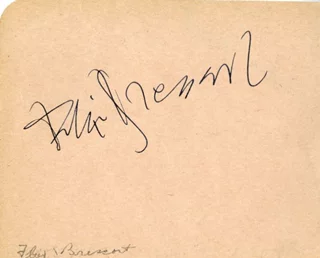 Felix Bressart
Felix Bressart